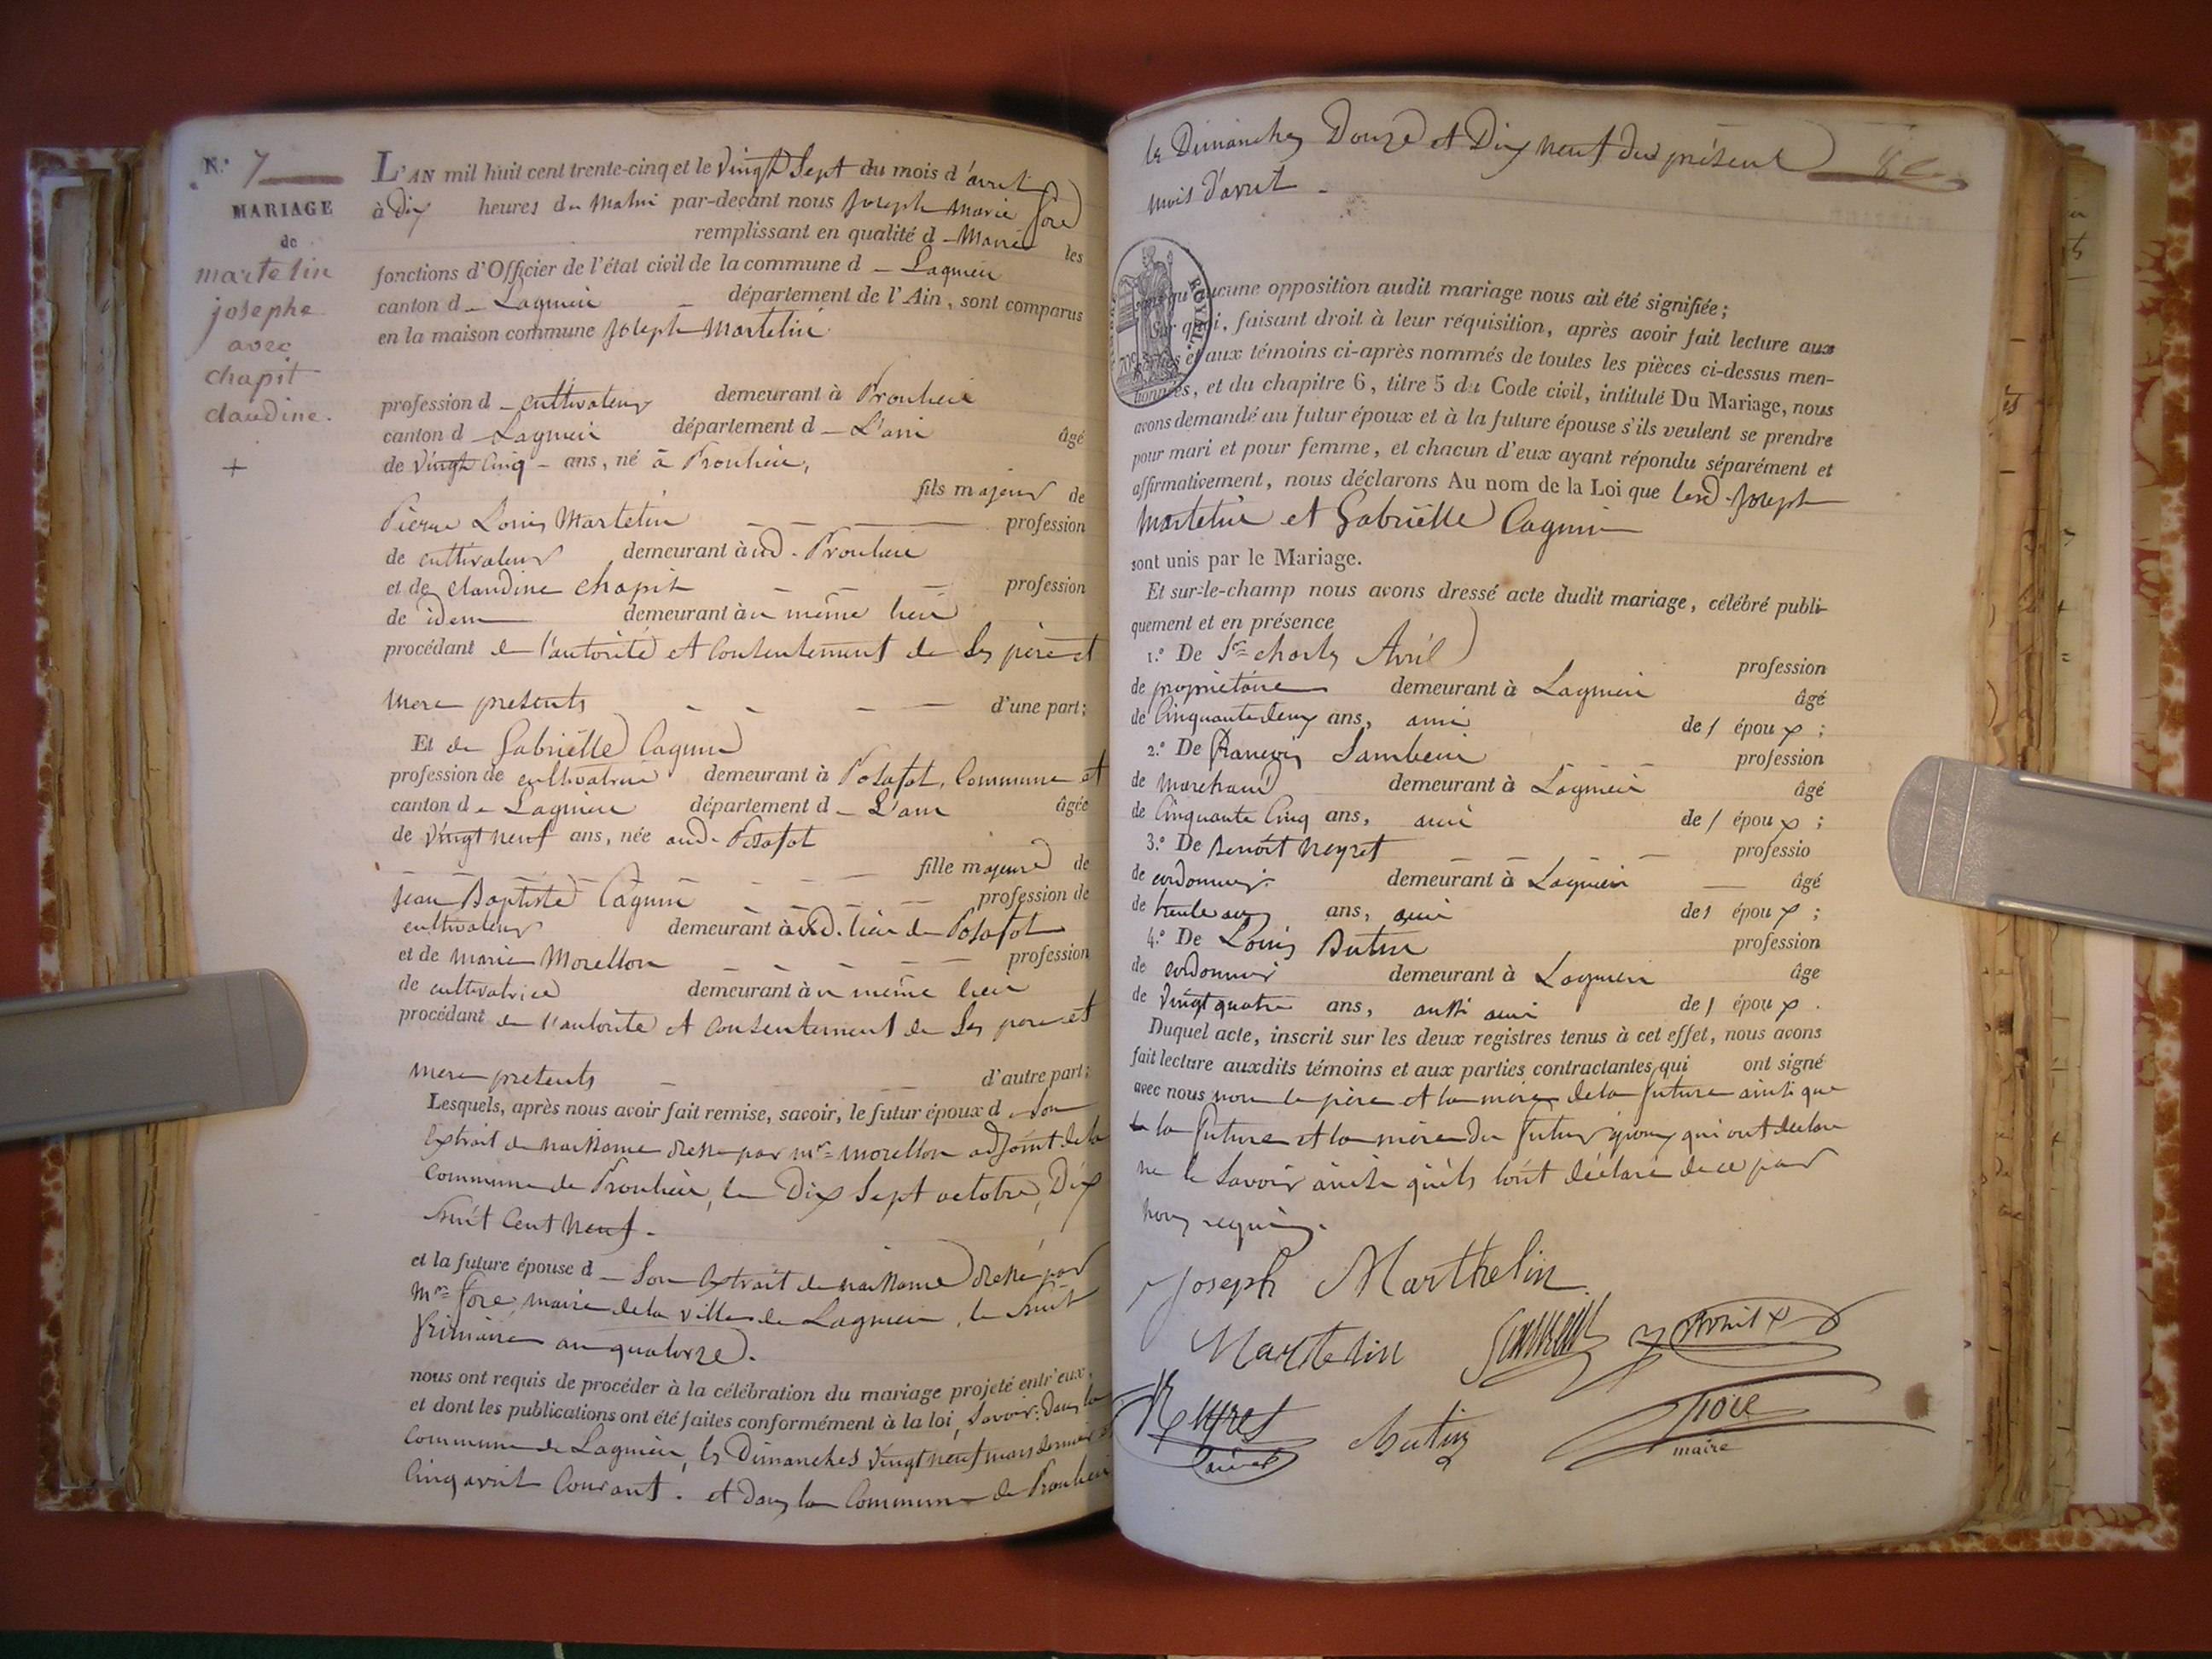 N.° 7
MARIAGE
de
martelin
josephe
avec
chapit
claudine.
+
L'AN mil huit cent trente-cinq et le vingt Sept du mois d'avril
à dix heures du matin par-devant nous Joseph Marie
remplissant en qualité d - Maire les
fonctions d'Officier de l'état civil de la commune d - Lagnieu
canton d - Lagnieu - département de l'Ain, sont comparus
en la maison commune Joseph Martelin
profession d - cultivateur demeurant à Proulieu
canton d - Lagnieu département d - L'ain âgé
de vingt cinq - ans, né à Proulieu,
fils majeur de
Pierre Louis Martelin profession
de cultivateur demeurant à ud. Proulieu
et de Claudine Chapit profession
de idem demeurant à u même lieu
procédant de l'autorité et consentement de ses père et
mere présents d'une part;
Et de Gabriëlle Cagnin
profession de cultivatrice demeurant à Posafol, Commune et
canton de Lagnieu département d - L'ain âgée
de vingt neuf ans, née aud. Posafol
fille majeure de
Jean Baptiste Cagnin profession de
cultivateur demeurant à ud. lieu de Posafol
et de Marie Morellon profession
de cultivatrice demeurant à u même lieu
procédant de l'autorité et consentement de ses pere et
mere présents d'autre part;
Lesquels, après nous avoir fait remise, savoir, le futur époux d - son
extrait de naissance dressé par mr. morellon adjoint de la
Commune de Proulieu, le Dix Sept octobre, Dix
huit Cent neuf.
et la future épouse d - Son extrait de naissance dressé par
mr. maire de la ville de Lagnieu, le huit
frimaire an quatorze.
nous ont requis de procéder à la célébration du mariage projeté entr'eux,
et dont les publications ont été faites conformément à la loi, Savoir: Dans la
Commune de Lagnieu, les Dimanches vingt neuf mars dernier et
Cinq avril Courant. et dans la Commune de Proulieu
les Dimanches Douze et Dix neuf du présent
mois d'avril -
ROYAL
70 c
Sans qu'aucune opposition audit mariage nous ait été signifiée;
Sur quoi, faisant droit à leur réquisition, après avoir fait lecture aux
parties et aux témoins ci-après nommés de toutes les pièces ci-dessus men-
tionnées, et du chapitre 6, titre 5 du Code civil, intitulé Du Mariage, nous
avons demandé au futur époux et à la future épouse s'ils veulent se prendre
pour mari et pour femme, et chacun d'eux ayant répondu séparément et
affirmativement, nous déclarons Au nom de la Loi que lesd. Joseph
Martelin et Gabriëlle Cagnin
sont unis par le Mariage.
Et sur-le-champ nous avons dressé acte dudit mariage, célébré publi-
quement et en présence
1.° De Sr. Charles Avril profession
de propriétaire demeurant à Lagnieu âgé
de Cinquante deux ans, ami de l époux;
2.° De François profession
de marchand demeurant à Lagnieu âgé
de Cinquante Cinq ans, ami de l époux;
3.° De Benoît Neyret professio
de cordonnier demeurant à Lagnieu âgé
de ans, ami de l époux;
4.° De Louis Butin profession
de cordonnier demeurant à Lagnieu âge
de vingt quatre ans, aussi ami de l époux.
Duquel acte, inscrit sur les deux registres tenus à cet effet, nous avons
fait lecture auxdits témoins et aux parties contractantes, qui ont signé
avec nous non le père et la mère de la future ainsi que
la future et la mère du futur époux qui ont déclaré
ne le savoir ainsi qu'ils l'ont déclaré de ce par
nous requis.
Joseph Marthelin
Martelin Avril
Neyret Butin
maire